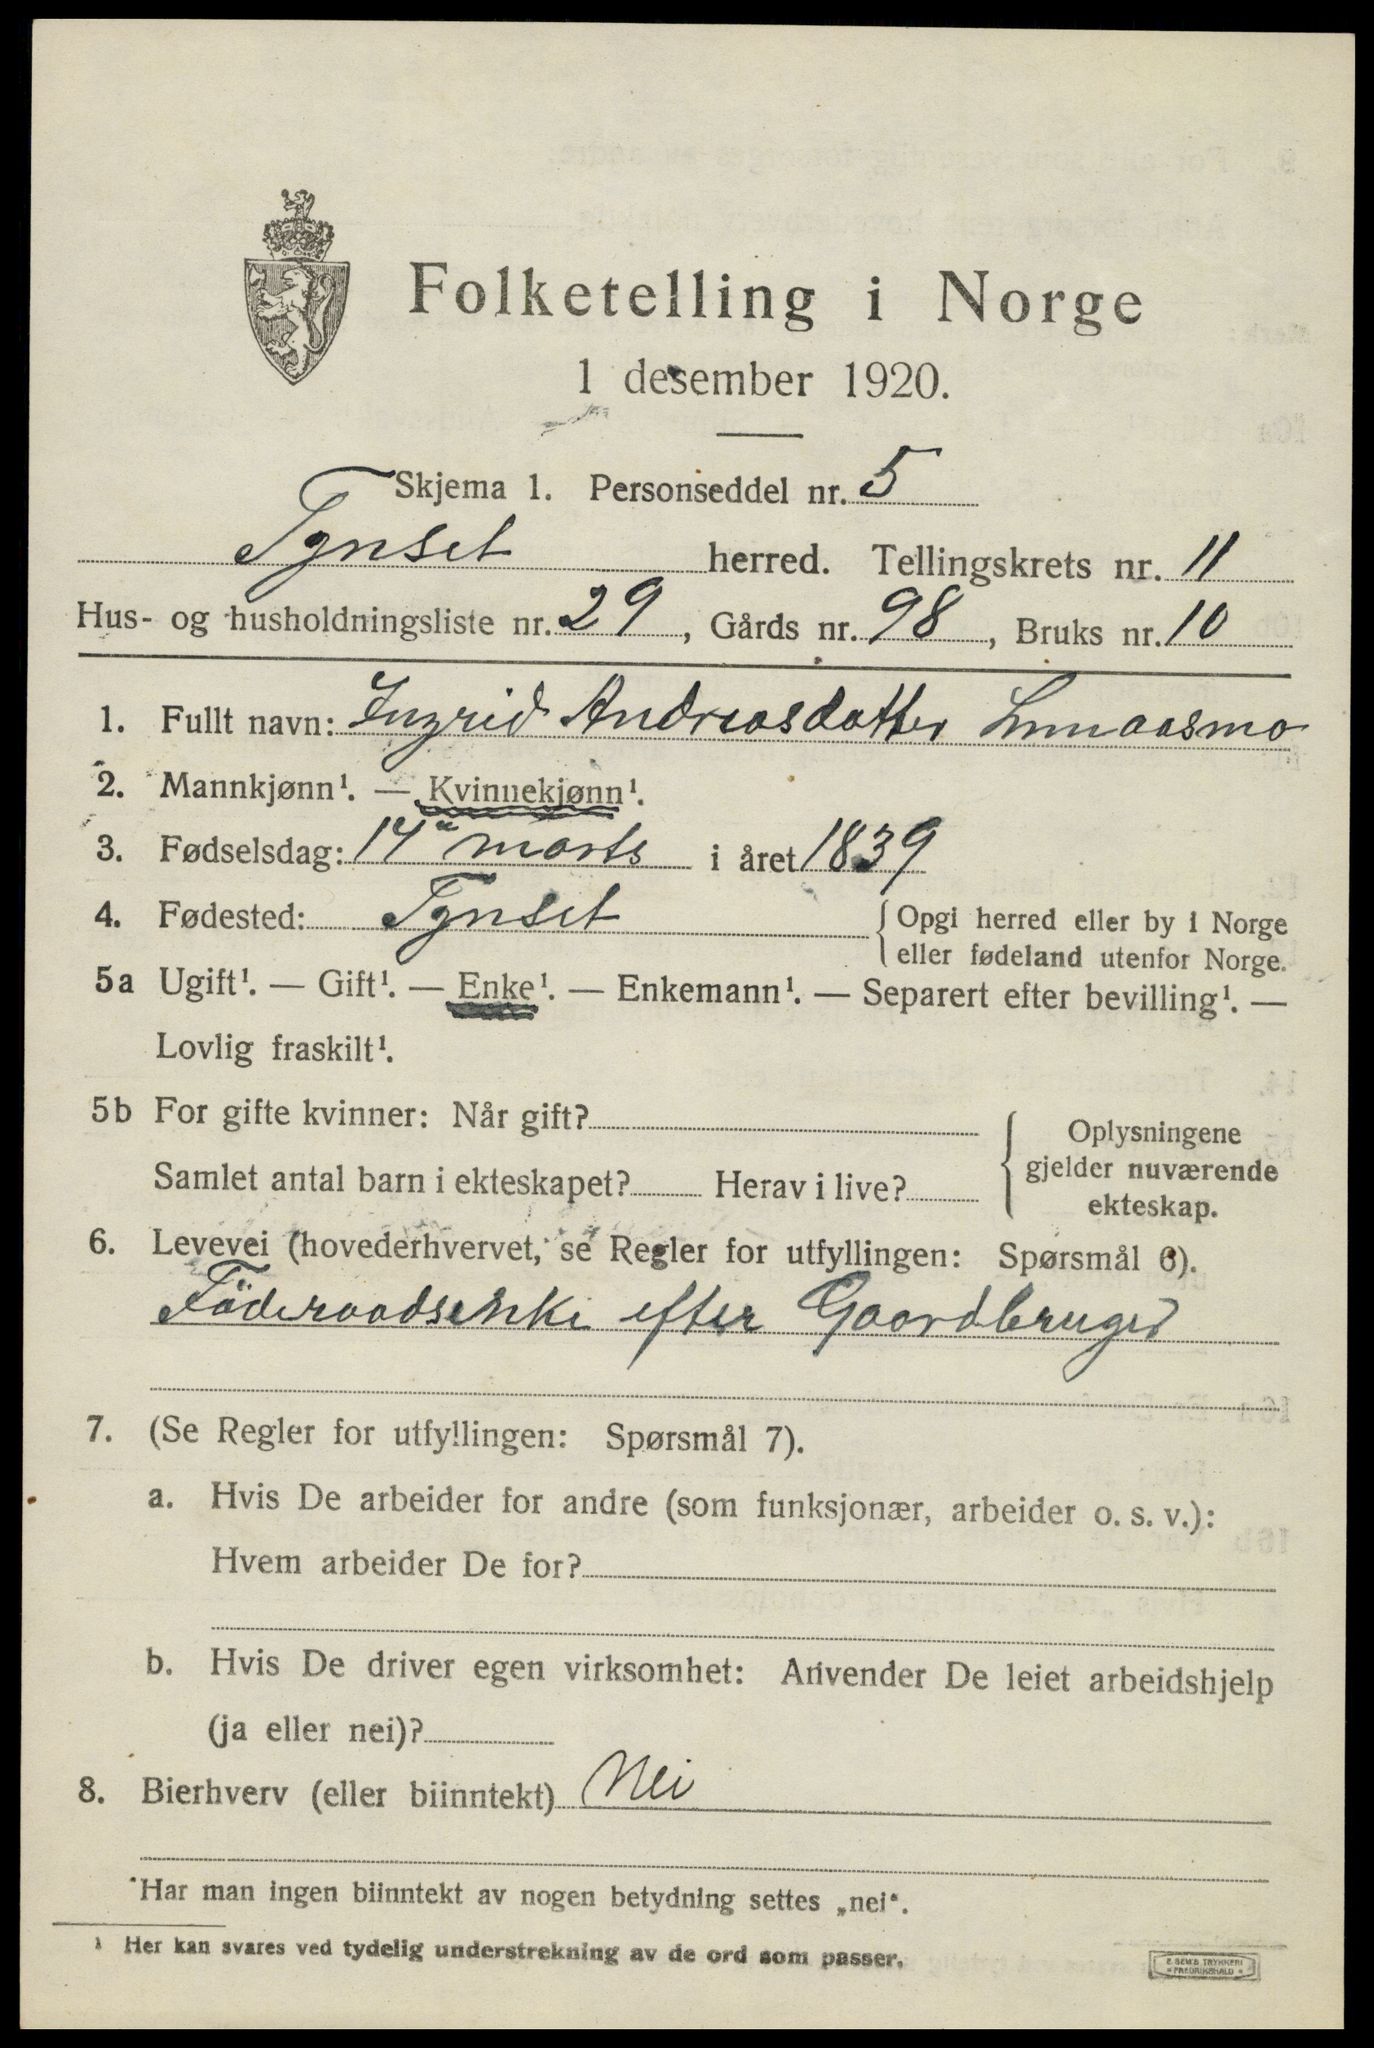 Folketelling i Norge
1 desember 1920.
Skjema 1. Personseddel nr. 5
Tynset herred. Tellingskrets nr. 11
Hus- og husholdningsliste nr. 29, Gårds nr. 98, Bruks nr. 10
1. Fullt navn: Ingrid Andreasdatter
2. Mannkjønn¹. — Kvinnekjønn¹.
3. Fødselsdag: 14de marts i året 1839
4. Fødested: Tynset {Opgi herred eller by i Norge
eller fødeland utenfor Norge.
5a Ugift¹. — Gift¹. — Enke¹. — Enkemann¹. — Separert efter bevilling¹. —
Lovlig fraskilt¹.
5b For gifte kvinner: Når gift?
Samlet antal barn i ekteskapet? Herav i live?
{Oplysningene
gjelder nuværende
ekteskap.
6. Levevei (hovederhvervet, se Regler for utfyllingen: Spørsmål 6).
Föderaadsenke efter Gaardbruger
7. (Se Regler for utfyllingen: Spørsmål 7).
a. Hvis De arbeider for andre (som funksjonær, arbeider o. s. v.):
Hvem arbeider De for?
b. Hvis De driver egen virksomhet: Anvender De leiet arbeidshjelp
(ja eller nei)?
8. Bierhverv (eller biinntekt) Nei
*Har man ingen biinntekt av nogen betydning settes „nei“.
¹ Her kan svares ved tydelig understrekning av de ord som passer.
E. SEM'S TRYKKERI
FREDRIKSHALD